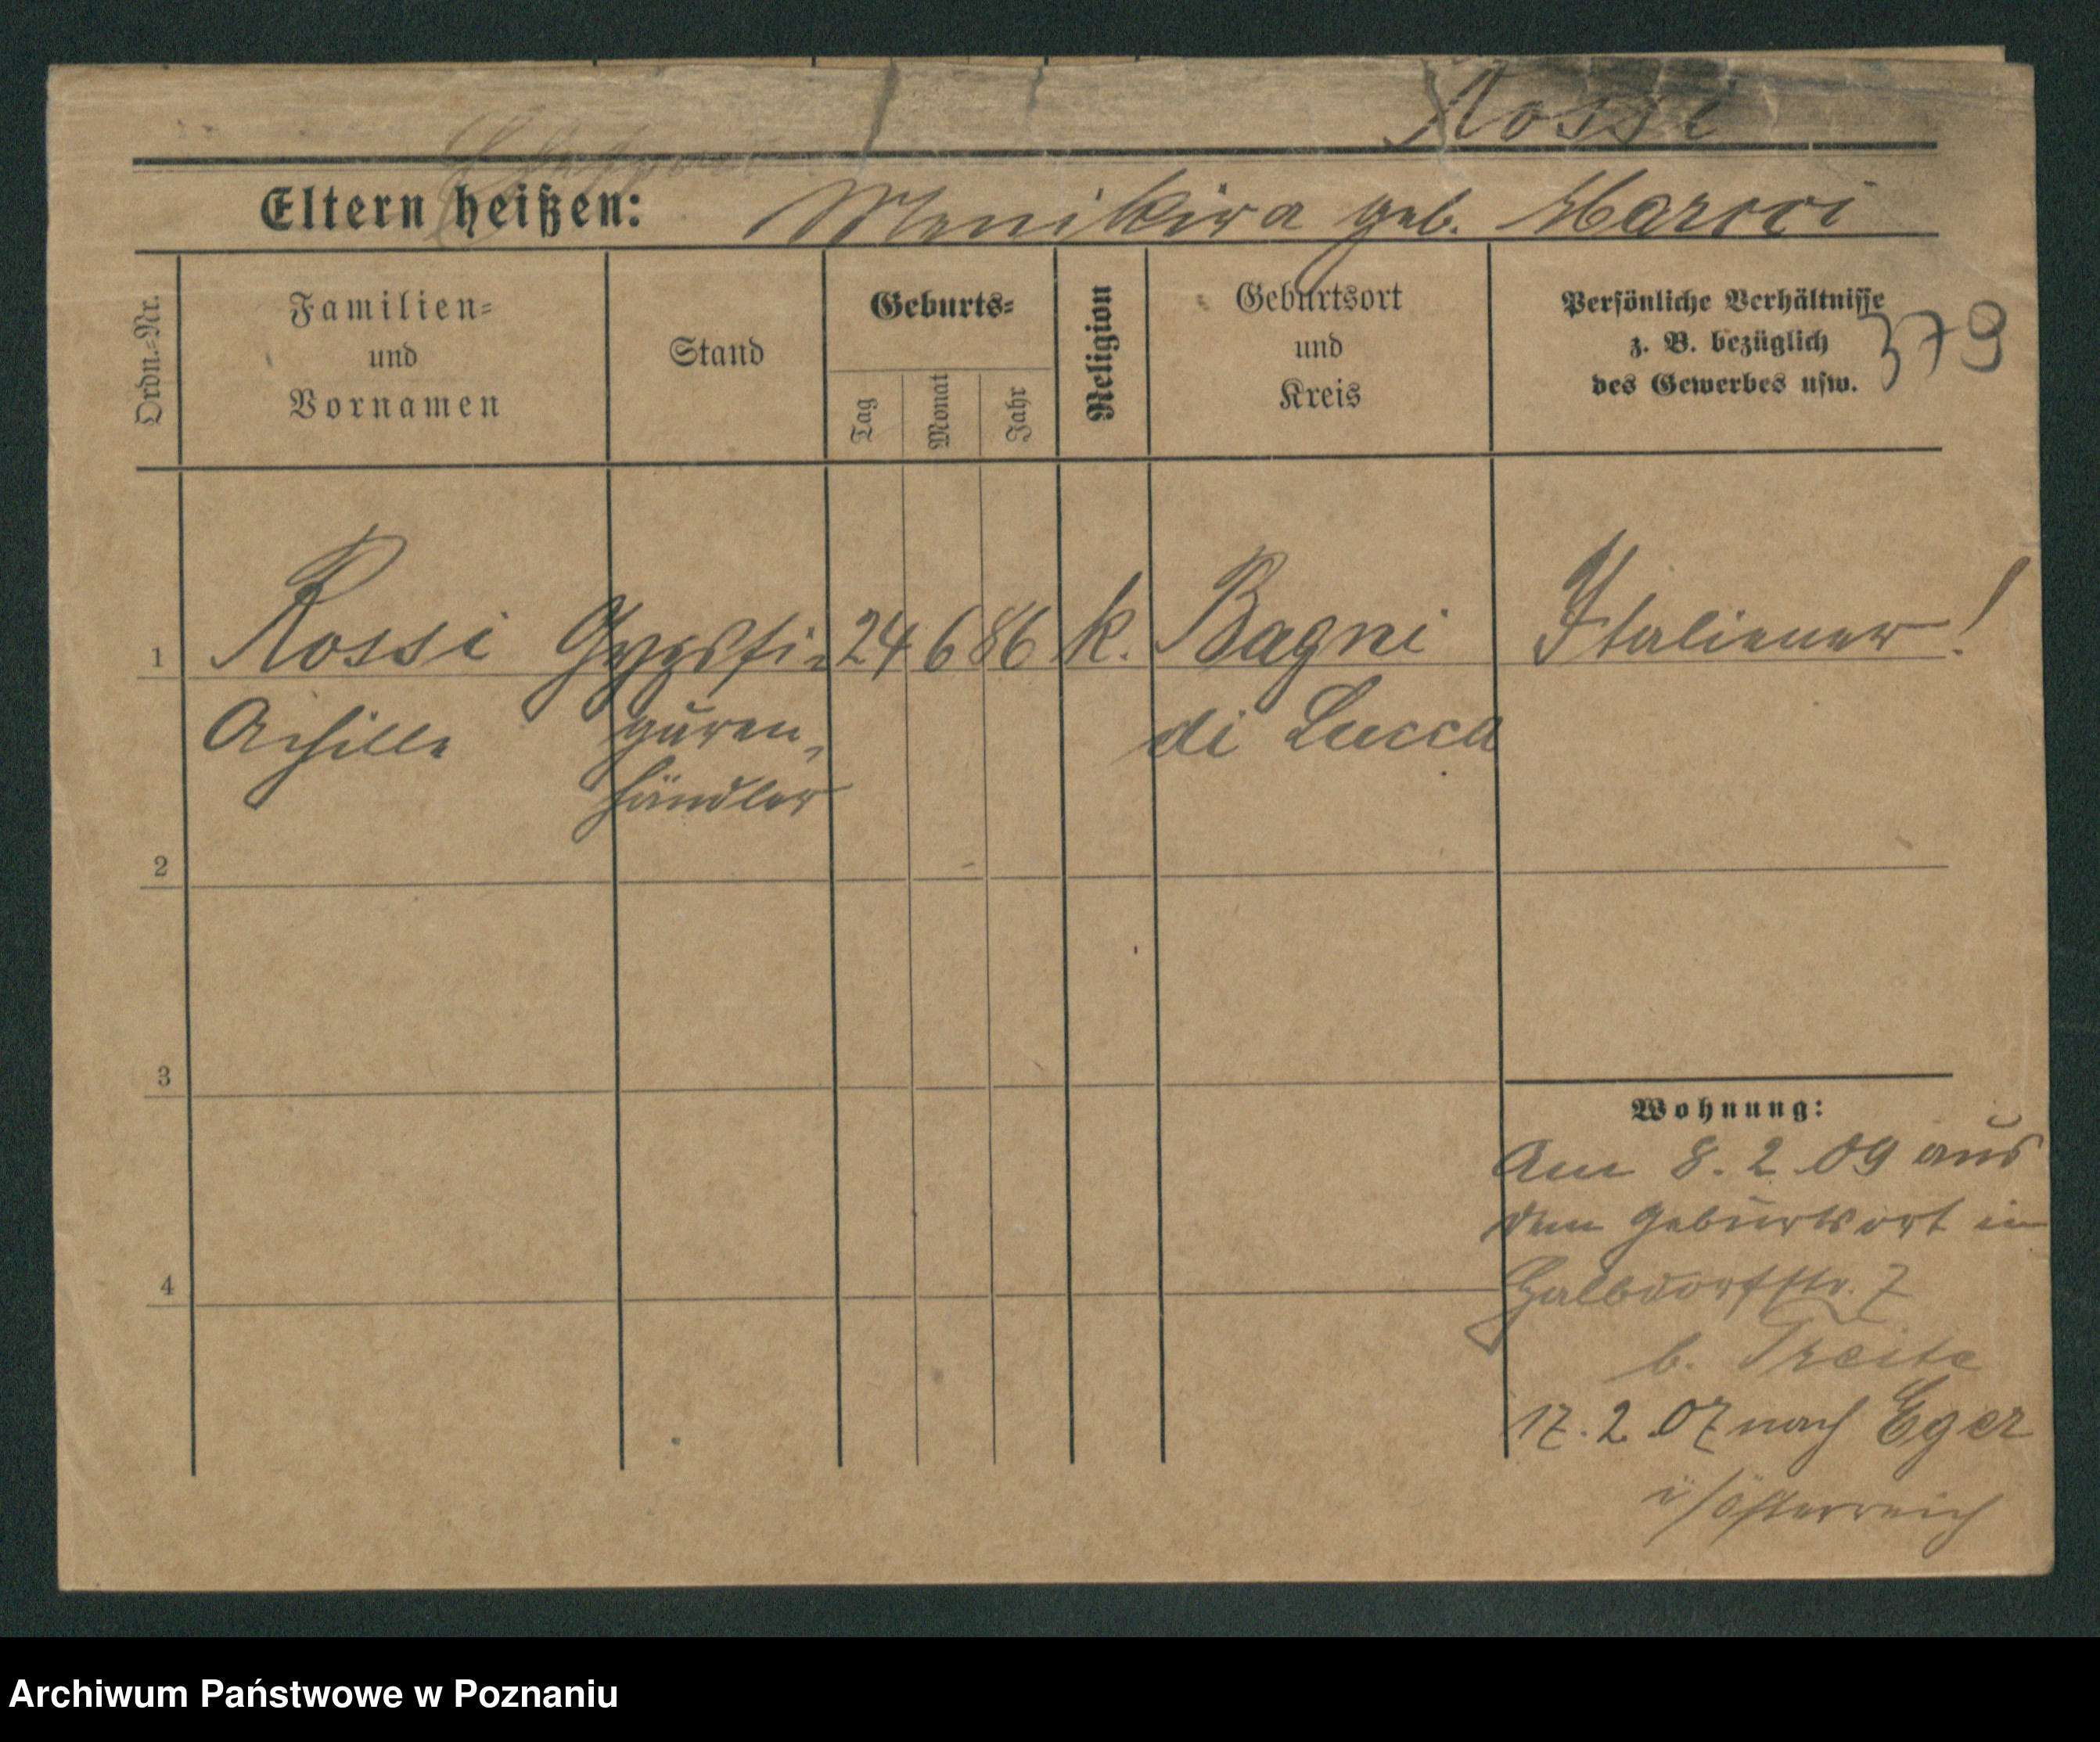 Rossi
Eltern heißen: Menikira geb. Marcci
Ordn.=Nr.
Familien=
und
Vornamen
Stand
Geburts=
Tag
Monat
Jahr
Religion
Geburtsort
und
Kreis
Persönliche Verhältnisse
z. B. bezüglich
des Gewerbes usw.
379
1 Rossi Gypsfi= 24 6 86 k. Bagni Italiener!
Achille guren= di Lucca
händler
2
3
Wohnung:
Am 8. 2. 09 aus
dem Geburtsort in
Halbdorfstr. 7
4
b. Treite
17. 2. 07 nach Eger
i/Österreich
Archiwum Państwowe w Poznaniu